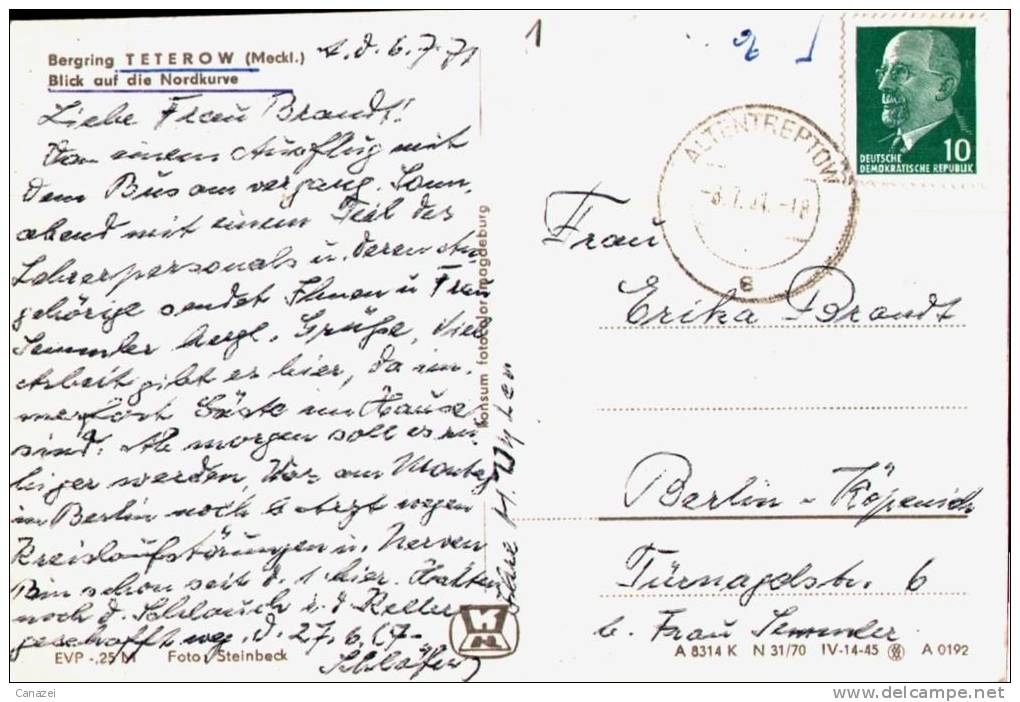 Bergring TETEROW (Meckl.)
Blick auf die Nordkurve
d. 6.7.71
Liebe Frau Brandt!
Von einem Ausflug mit
dem Bus am vergang. Sonn-
abend mit einem Teil des
Lehrerpersonals u. deren An-
gehörige sendet Ihnen u. Frau
Semmler hergl. Grüße, Viel
Arbeit gibt es hier, da im-
mer noch Gäste im Hause
sind. Ab morgen soll es ru-
higer werden, War am Montag
in Berlin noch b. Arzt wegen
Kreislaufstörungen u. Nerven
Bin schon seit d. 1. hier. Hatten
noch d. Schlauch i. d. Keller
geschafft weg. d. 27.6.
Ihre
Konsum fotocolor magdeburg
EVP -,25 M Foto: Steinbeck
1
2
DEUTSCHE
DEMOKRATISCHE REPUBLIK
10
ALTENTREPTOW
a
Frau
Erika Brandt
Berlin - Köpenick
Türnagelstr. 6
b. Frau Semmler
A 8314 K N 31/70 IV-14-45 A 0192
Canazei
www.delcampe.net